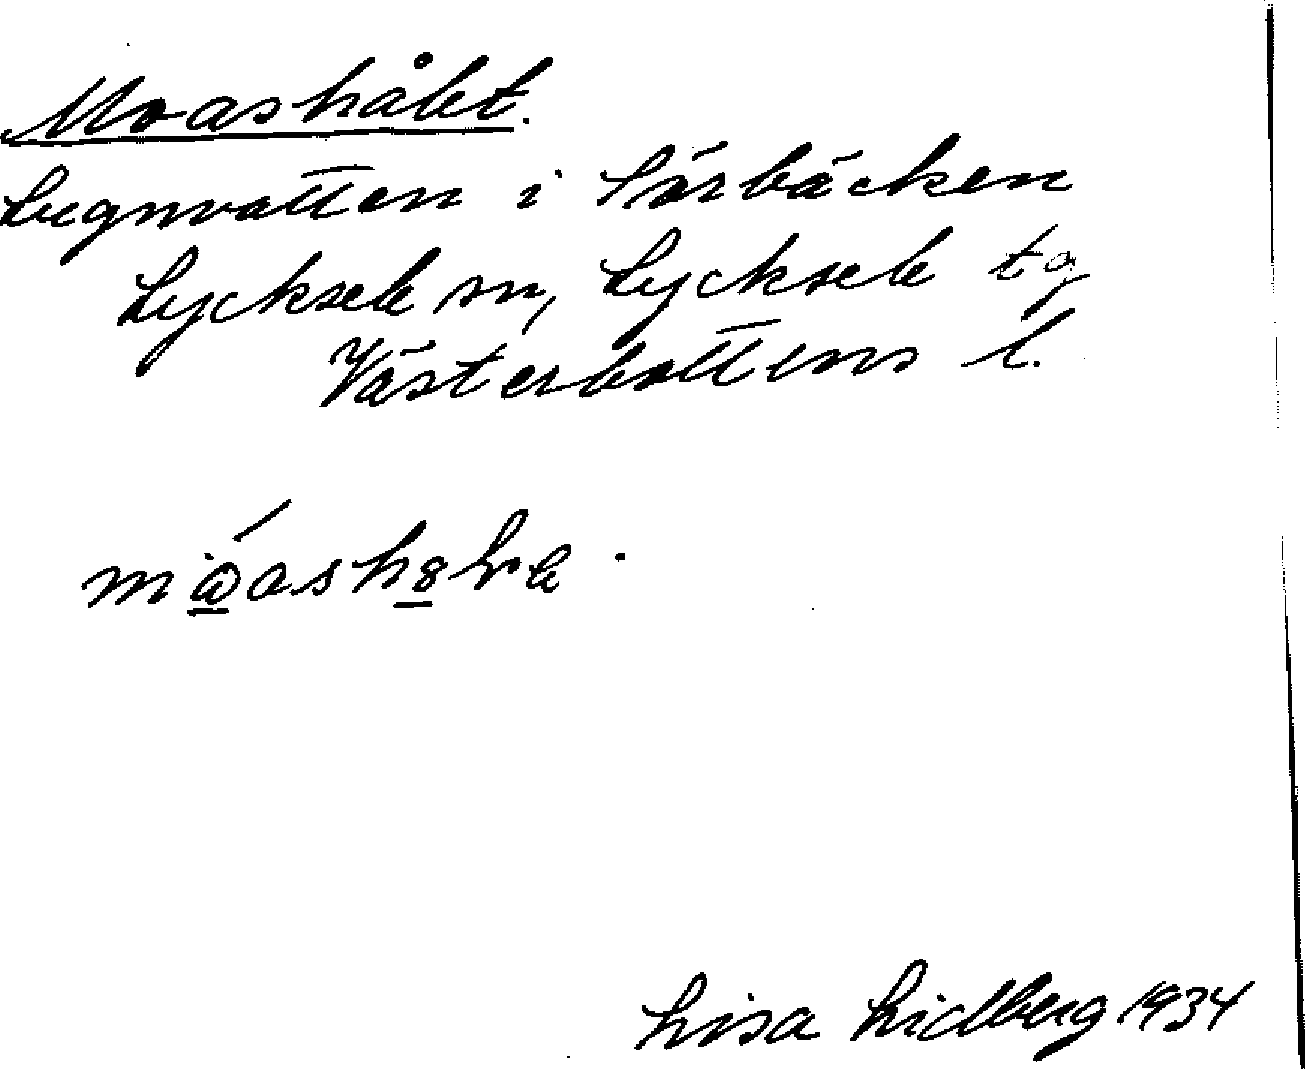 Moashålet.
Lugnvatten i Lärbäcken
Lycksele sn, Lycksele tg
Västerbottens l.
Lisa Lidberg 1934